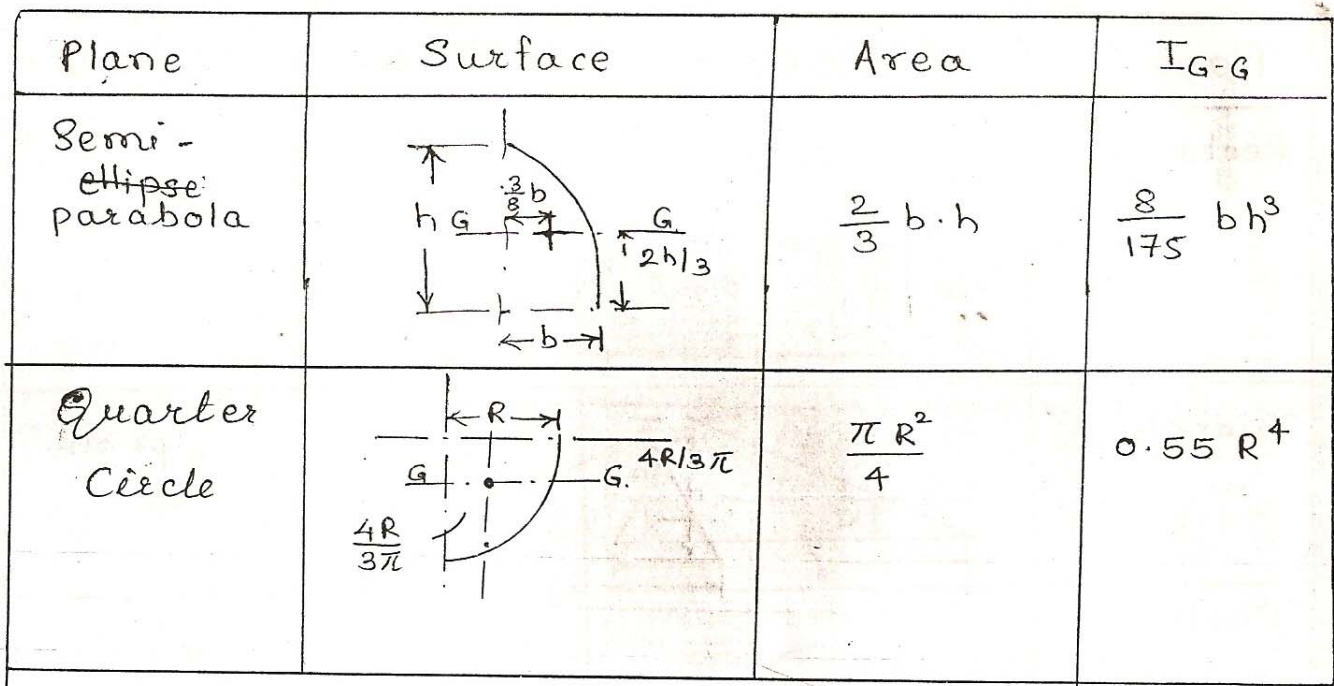 Plane
Surface
Area
I_{G-G}
Semi-
ellipse
parabola
h
G
3/8 b
G
2h/3
b
2/3 b·h
8/175 bh³
Quarter
Circle
R
4R/3π
G
G.
4R/3π
πR²/4
0.55 R⁴